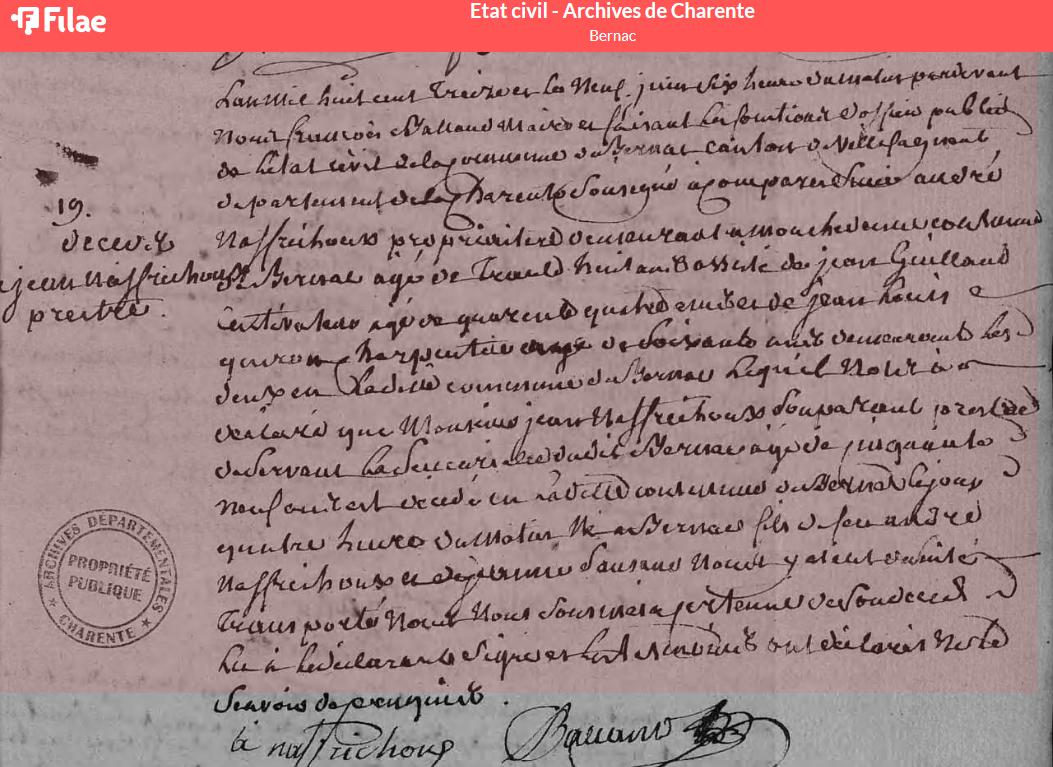 Filae
Etat civil - Archives de Charente
Bernac
L'an mil huit cent treize et le neuf juin six heure du matin pardevant
Nous françois Balland Maire et faisant les fonctions d'officier public
de l'état civil de la commune de Bernac canton de villefagnant
departement de la Charente Sousigné a comparu andré
Naffrichoux propriétere demeurant a commune
de Bernac agé de Trante huit ans assisté de jean Guilland
cultivateur agé de quarente quatre et de jean louis
charpentier agé de soixante ans demeurant les
deux en Ladite commune de Bernac Lequel Nous a
déclaré que Monsieur jean Naffrichoux son parant prestre
deservant La succursale dudit Bernac agé de sinquante
neuf ans est décédé en La ditte commune de Bernac le jour
quatre heure du matin Né a Bernac fils de feu andré
Naffrichoux et de Nous y
Transporté Nous Nous sommes de son deces
Lu a le declarant signé et les témoins ont déclarés ne le
savoir de ce enquis.
19.
deces de
jean Naffrichoux
prestre.
naffrichoux
Balland
ARCHIVES DÉPARTEMENTALES
PROPRIÉTÉ
PUBLIQUE
★ CHARENTE ★